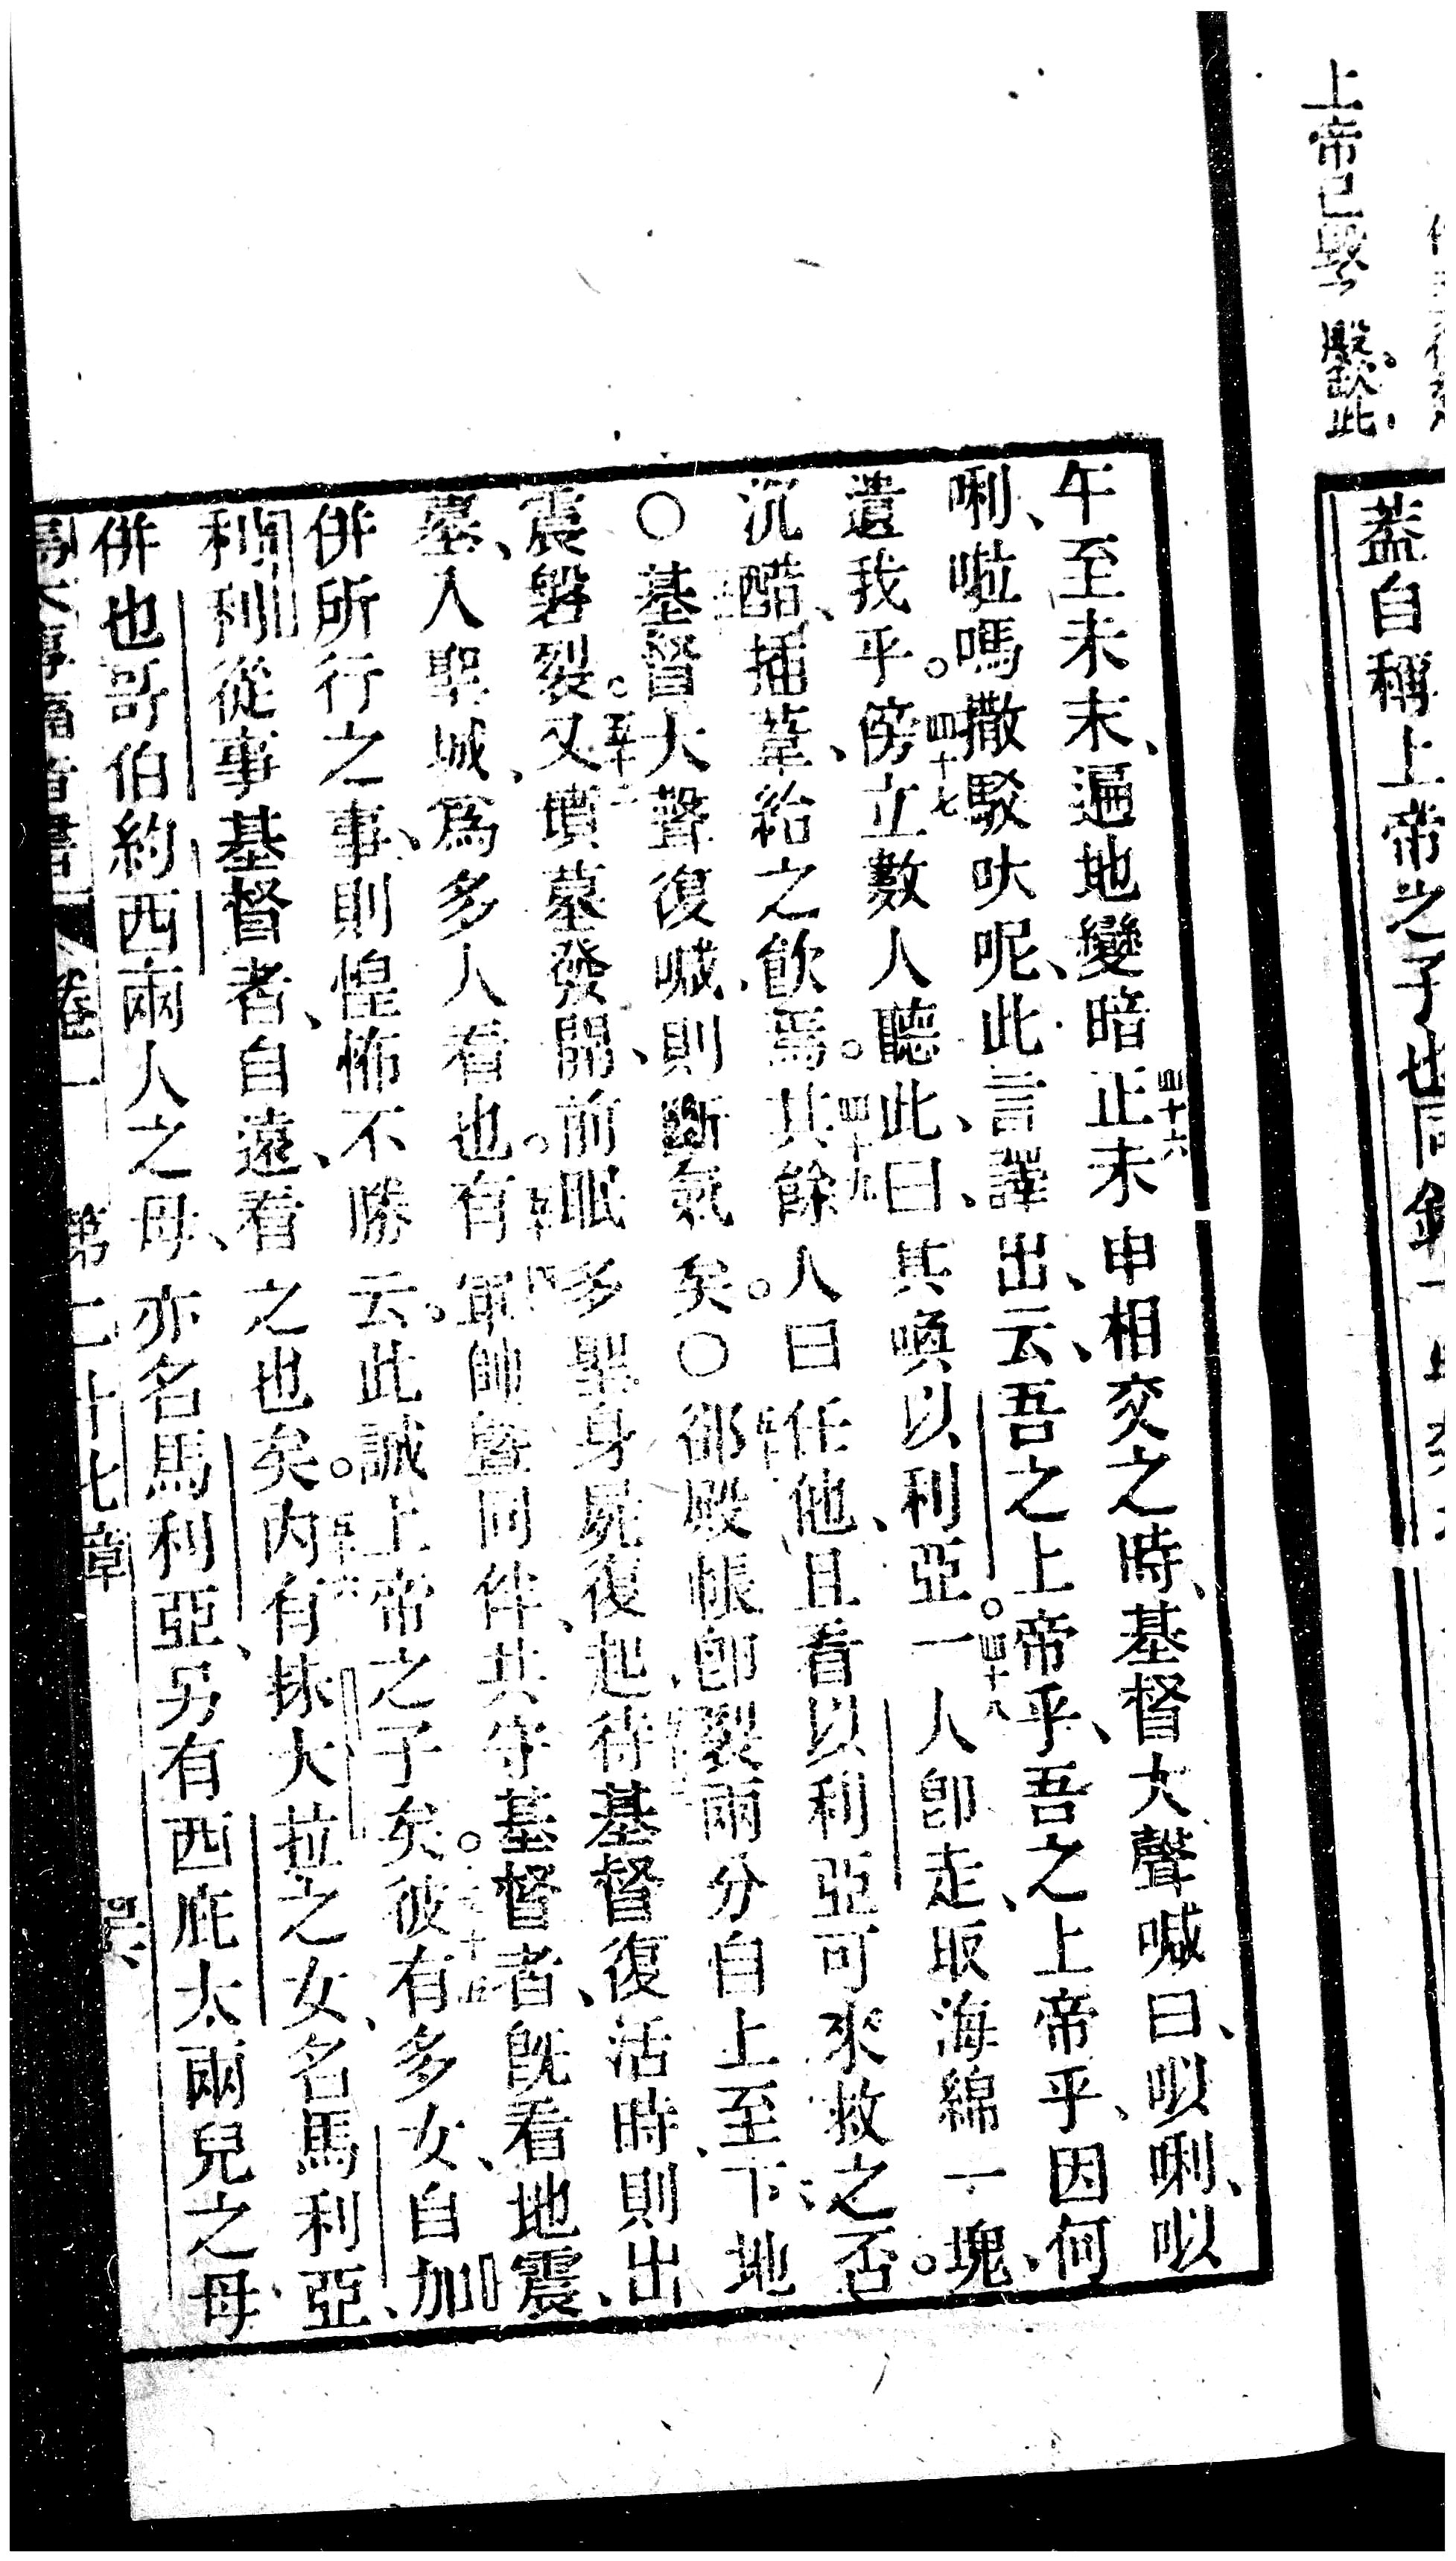 上帝已
毉欽此
蓋自稱上帝之子也同
午至未末、遍地變暗正未申相交之時、基督大聲喊曰、㕥唎、㕥
四十六
唎、啦嗎撒駁呔呢、此言譯出、云、吾之上帝乎、吾之上帝乎、因何
遺我乎。傍立數人聽此、曰、其喚以利亞。一人卽走、取海綿一塊、
四十七
四十八
沉醋、插葦、給之飲焉。其餘人曰任他、且看以利亞可來救之否。
四十九
○基督大聲復喊、則斷氣矣。○鄉殿帳卽裂兩分自上至下、地
震磐裂。又墳墓發開、前眠多聖身屍復起、待基督復活時、則出
墓、入聖城、爲多人看也。有軍師曁同伴、共守基督者、旣看地震、
併所行之事、則惶怖不勝云。此誠上帝之子矣。彼有多女、自加
利利從事基督者、自遠看之也矣。內有抹大拉之女、名馬利亞、
併也哥伯約西兩人之母、亦名馬利亞、另有西庇太兩兒之母、
馬太傳福音書 卷一 第二十七章